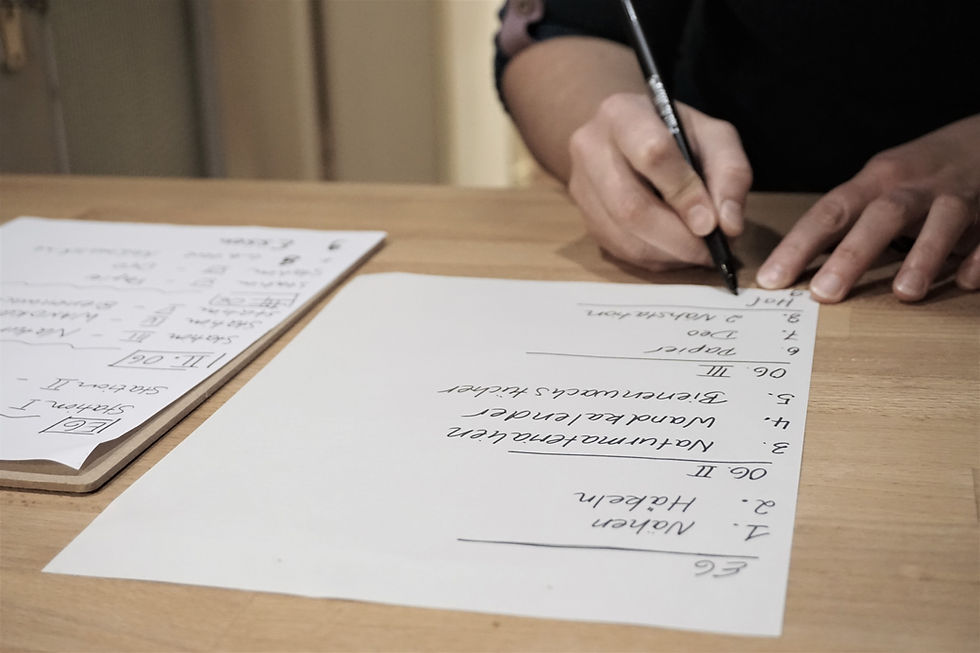 EG
1. Nähen
2. Häkeln
OG. II
3. Naturmaterialien
4. Wandkalender
5. Bienenwachstücher
OG. III
6. Papier
7. Deo
8. 2. Nähstation
Hof
EG
Station I
Station II -
II. OG
Station III - Natur
Station - Wandkal
Station - Bienenwac
III. OG
Station - Papier
Station - Deo
Essen